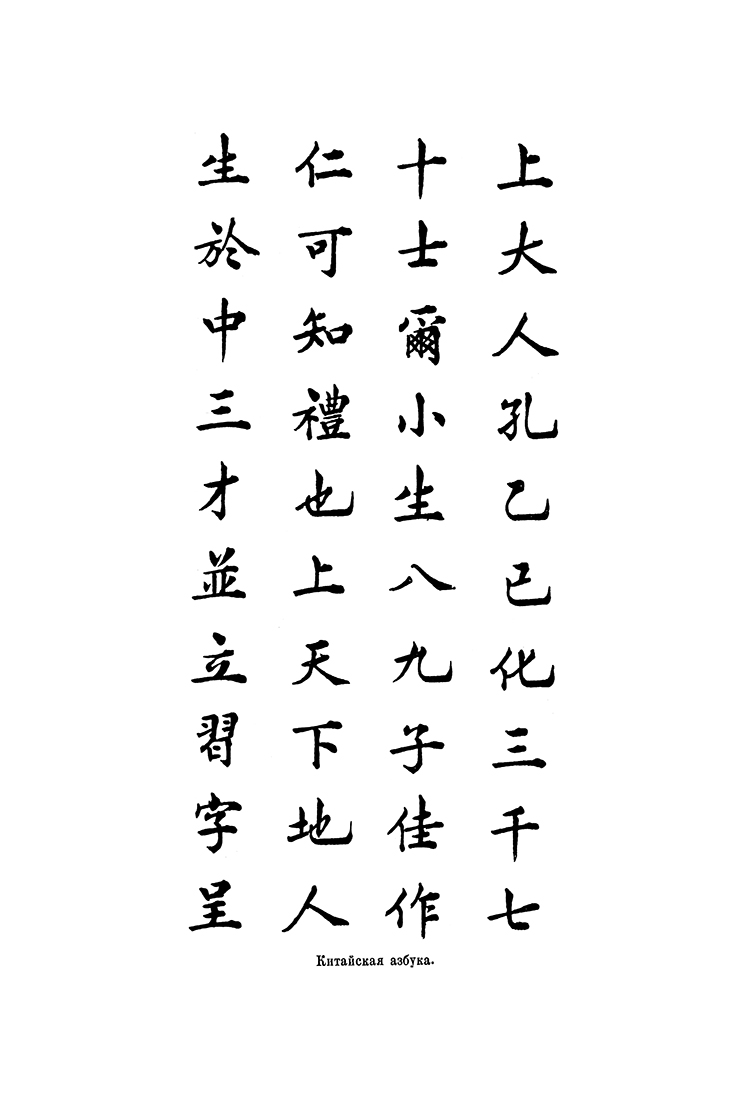 上大人孔乙已化三千七
十士爾小生八九子佳作
仁可知禮也上天下地人
生於中三才並立習字呈
Китайская азбука.